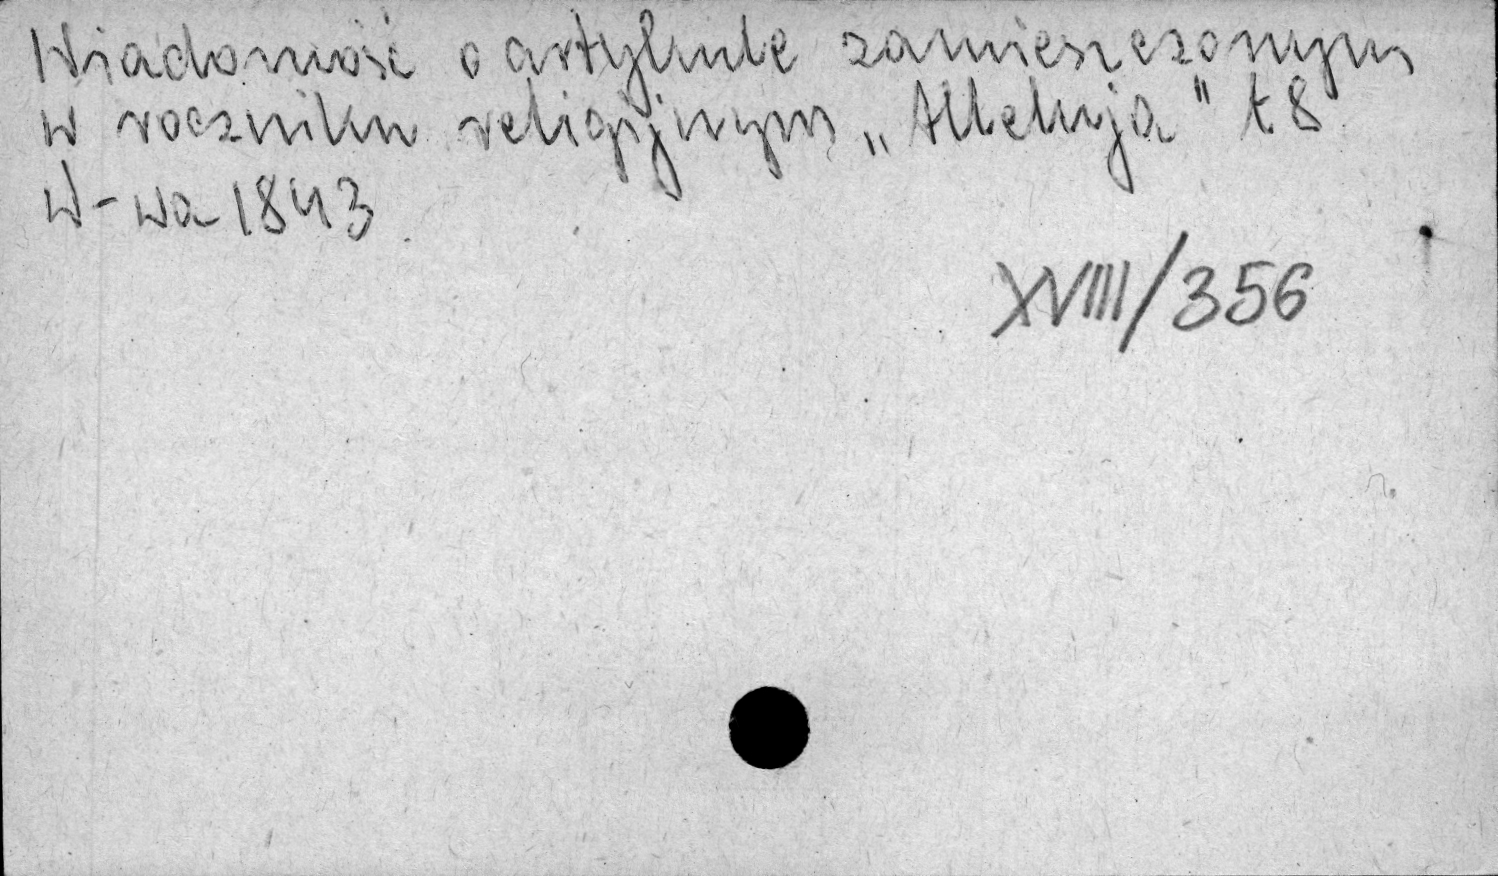 Wiadomość o artykule zamieszczonym
w roczniku religijnym „Alleluja" t 8
W-wa 1843
XVIII/356